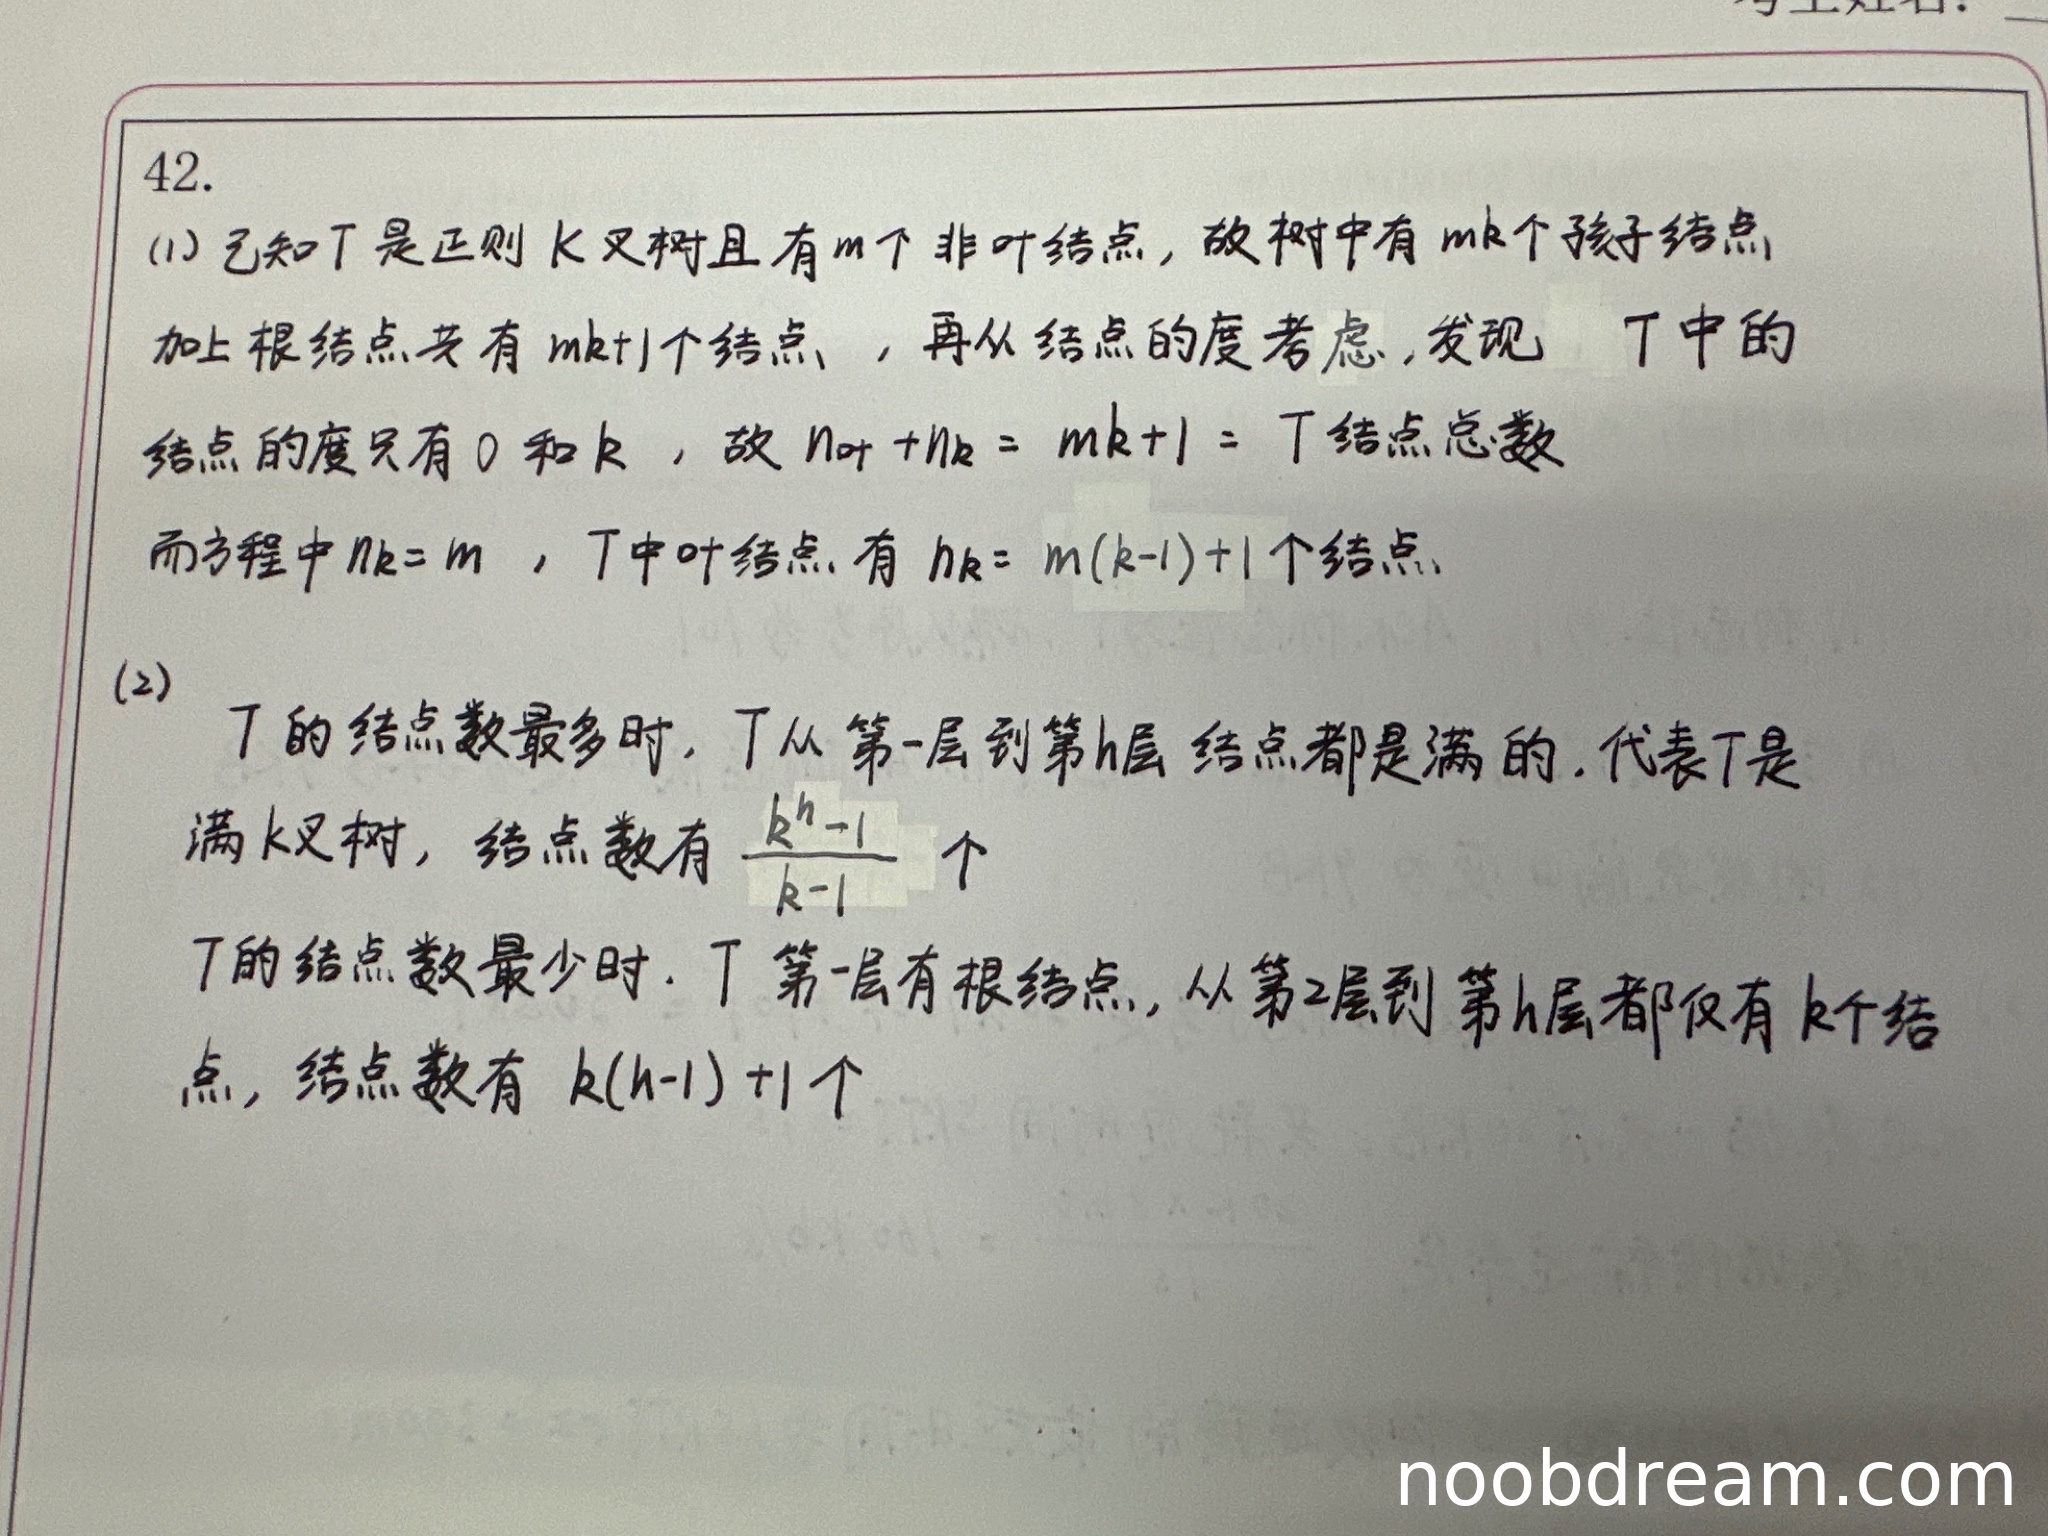 考生姓名:
42.
(1) 已知T是正则K叉树且有m个非叶结点,故树中有mk个孩子结点
加上根结点共有mk+1个结点,再从结点的度考虑,发现 T中的
结点的度只有0和k,故 n叶+nk = mk+1 = T结点总数
而方程中nk=m,T中叶结点有nk= m(k-1)+1个结点
(2)
T的结点数最多时,T从第一层到第h层结点都是满的.代表T是
满k叉树,结点数有 k^h-1 / k-1 个
T的结点数最少时.T第一层有根结点,从第2层到第h层都仅有k个结
点,结点数有 k(h-1)+1个
noobdream.com